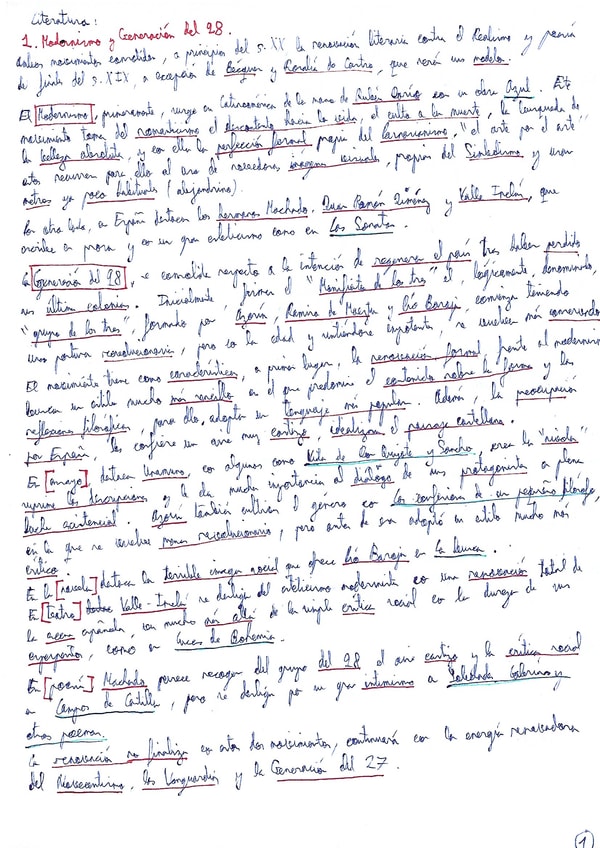 Literatura:
1. Modernismo y Generación del 98.
Ambos movimientos consolidan, a principios del s. XX la renovación literaria contra el Realismo y poesía
de finales del s. XIX, a excepción de Bécquer y Rosalía de Castro, que serán sus modelos.
El Modernismo, primeramente, surge en Latinoamérica de la mano de Rubén Darío con su obra Azul. Este
movimiento toma del romanticismo el descontento hacia la vida, el culto a la muerte, la búsqueda de
la belleza absoluta, y con ella la perfección formal propia del Parnasianismo, "el arte por el arte"
estos recurren para ello al uso de novedosas imágenes visuales, propias del Simbolismo y usan
metros ya poco habituales (alejandrino).
Por otro lado, en España destacan los hermanos Machado, Juan Ramón Jiménez y Valle Inclán, que
escribe en prosa y con un gran esteticismo como en Las Sonatas.
La Generación del 98, se consolida respecto a la intención de regenerar el país tras haber perdido
sus últimas colonias. Inicialmente, forman el "Manifiesto de los tres" el lógicamente, denominado,
"grupo de los tres", formado por Azorín, Ramiro de Maeztu y Pío Baroja, comienzan teniendo
una postura revolucionaria, pero con la edad y sintiéndose impotentes, se vuelven más conservadores
El movimiento tiene como características, en primer lugar, la renovación formal frente al modernismo
buscan un estilo mucho más sencillo en el que predomine el contenido sobre la forma y las
reflexiones filosóficas, para ello, adoptan un lenguaje más popular. Además, la preocupación
por España, les confiere un aire muy castizo, idealizan el paisaje castellano.
En [ensayo] destaca Unamuno, con algunos como Vida de Don Quijote y Sancho, crea la "nivola"
suprime las descripciones y le da mucha importancia al diálogo de sus protagonistas en plena
lucha existencial. Azorín también cultiva el género con Las confesiones de un pequeño filósofo,
en la que se vuelve menos revolucionario, pero antes de eso adoptó un estilo mucho más
crítico.
En la [novela] destaca la terrible imagen social que ofrece Pío Baroja en La busca.
En [teatro] Valle-Inclán se desliga del esteticismo modernista con una renovación total de
la escena española, van mucho más allá de la simple crítica social con la dureza de sus
esperpentos, como en Luces de Bohemia.
En [poesía] Machado parece recoger del grupo del 98 el aire castizo y la crítica social
en Campos de Castilla, pero se desliga por su gran intimismo en Soledades, Galerías y
otros poemas.
La renovación no finaliza en estos dos movimientos, continuará con la energía renovadora
del Novecentismo, las Vanguardias y la Generación del 27.
1